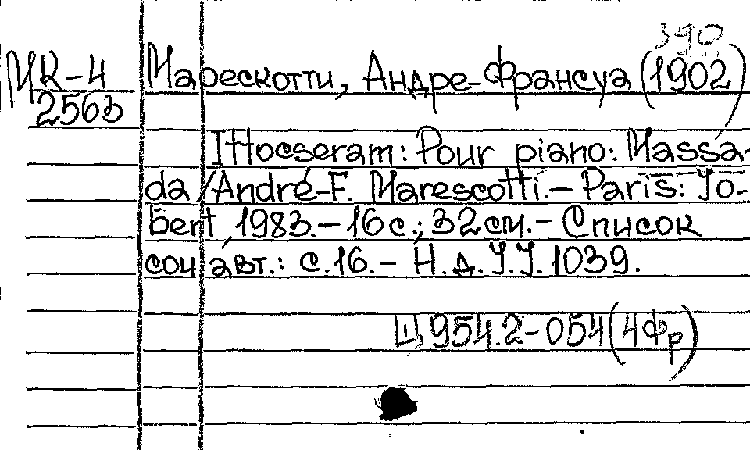 390
МК-4 Марескотти, Андре-Франсуа (1902)
2563
Ittocseram: Pour piano: Massa-
da / André-F. Marescotti. – Paris: Jo-
bert, 1983. – 16 с.; 32 см. – Список
соч. авт.: с. 16. – Н.д. J.J. 1039.
Щ 954.2-054(4Фр)